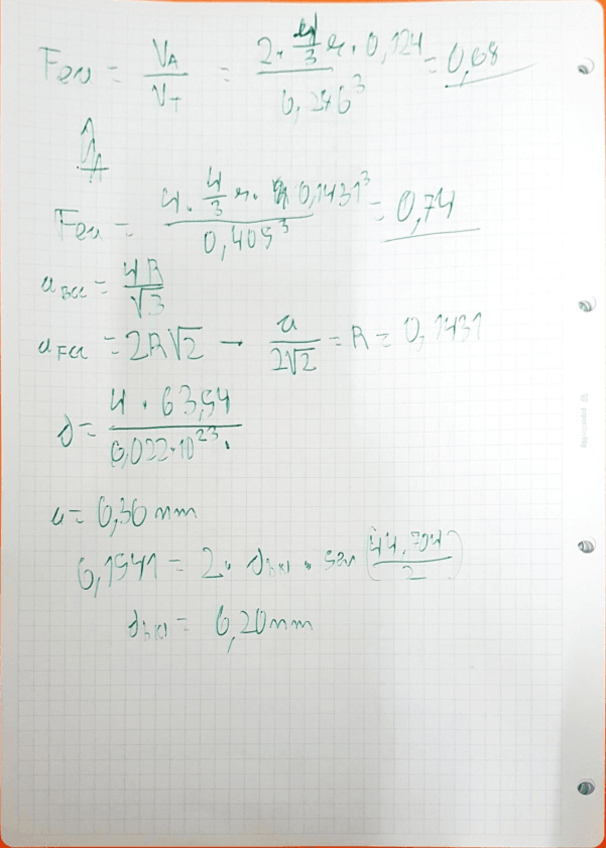 Feu = V_A / V_T = 2 · 4/3 π · 0,124 / 0,286³ = 0,68
Feu = 4 · 4/3 π · 0,1431³ / 0,405³ = 0,74
a_BCC = 4R / √3
a_FCC = 2R√2 → a / 2√2 = R = 0,1431
δ = 4 · 63,54 / 6,022·10²³ ·
a = 0,36 nm
0,1541 = 2 · d_hkl · sen (44,704 / 2)
d_hkl = 0,20 nm